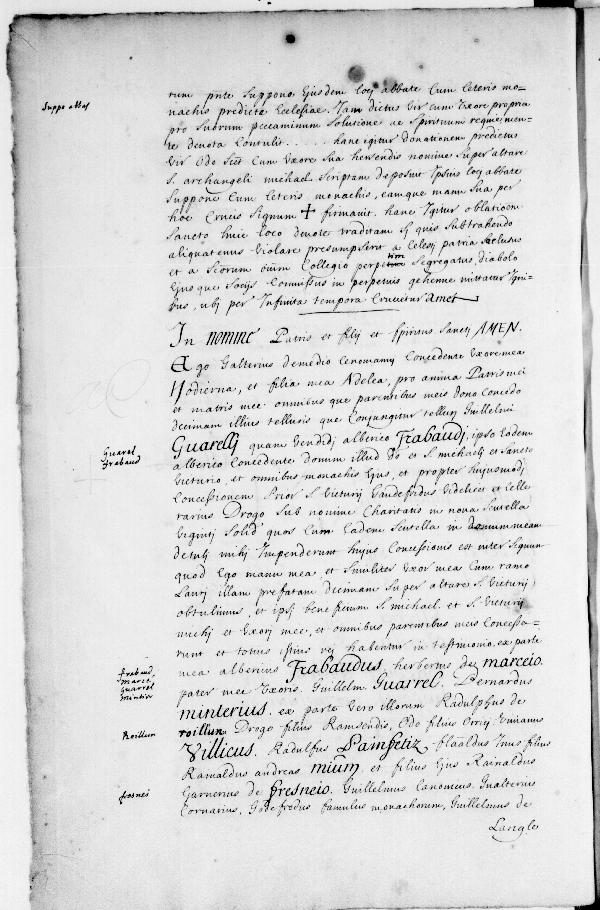 Suppo abbas
rum pnte Suppono Ejusdem locj abbate Cum Ceteris mo-
nachis predicte Ecclesiae. Jam dictus vir cum Uxore propria
pro Suorum peccaminum Solutione ac Spirituum requie, men-
te devota Contulit. . . . . . hanc igitur donationem predictus
vir Odo Scet Cum Uxore Sua hersendis nomine Super altare
S. archangeli michael Scriptam deposuit Ipsius locj abbate
Suppone Cum Ceteris monachis, eamque manu Sua per
hoc Crucis Signum + firmavit. hanc Igitur oblationem
Sancto huic loco devote traditam Sj quis Subtrahendo
aliquatenus violare presumpserit a Celesti patria Seclusus
et a Sicorum ovium Collegio perpetim Segregatus, diabolo
Ejusque Socijs Commissus in perpetuis gehenne mittatur Igni-
bus, ubj per Infinita tempora Crucietur Amet
In nomine Patris et filij et Spiritus Sanctj AMEN.
Ego Galterius de medio Cenomanny Concedente Uxore mea
Hodierna, et filia mea Adelea, pro anima Patris mei
et matris mee omnibus que parentibus meis dono Concedo
decimam illius tellusis que Conjungitur tellurj Guillelmi
Guarel
Frabaud
Guarellj quam Vendidj alberico Frabaudj, ipso Eodem
alberico Concedente donum illud do et S. michaelj et Sancto
Victurio, et omnibus monachis Ejus, et propter hujusmodj
Concessionem Prior S. Victurij Gaudefridus videlicet et Celle
rarius Drogo Sub nomine Charitatis in nova Scutella
Vigintj Solid quos Cum Eadem Scutella in domum meam
detulj mihj Impenderunt hujus Concessionis est inter Signum
quod Ego manu mea, et Similiter Uxor mea Cum ramo
Laurj illam prefatam decimam Super altare S. Victurij
obtulimus, et ipsj beneficium S. michael. et S. Victurij
michj et Uxorj mee, et omnibus parentibus meis Concesse-
runt et totius istius rej habentur in testimonio. ex parte
Frabaud,
marce,
Guarrel
minter
mea alberius Frabaudus, herbertus de marceio.
pater mee Uxoris. Guillelm Guarrel. Bernardus
minterius. ex parte Vero illorum Radulphus de
Roillum
roillum Drogo filius Ramsendis, Odo filius Orrici Vivianus
Villicus. Radulfus Painfetiz filialdus Inus filius
Rainaldus andreas mium et filius Ejus Rainaldus
fresnei
Garnerius de fresneio. Guillelmus Canonicus. Gualterius
Cornarius, Godefredus famulus monachorum, Guillelmus de
Langle